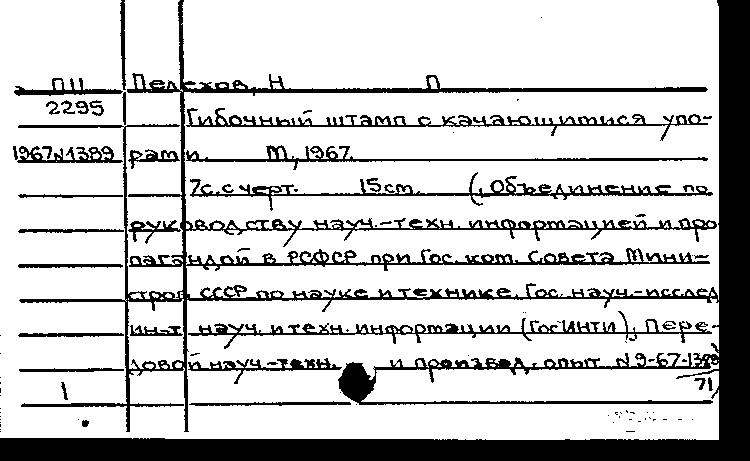 ПII Пелехов, Н П
2295 Гибочный штамп с качающимися упо-
1967№1389 рами. М, 1967.
7с. с черт. 15см. (, Объединение по
руководству науч.-техн. информацией и про
пагандой в РСФСР при Гос. ком. Совета Мини-
стров СССР по науке и технике. Гос. науч.-исслед
ин-т науч. и техн. информации (ГосИНТИ), Пере-
довой науч.-техн. и производ. опыт №9-67-1389
1 71